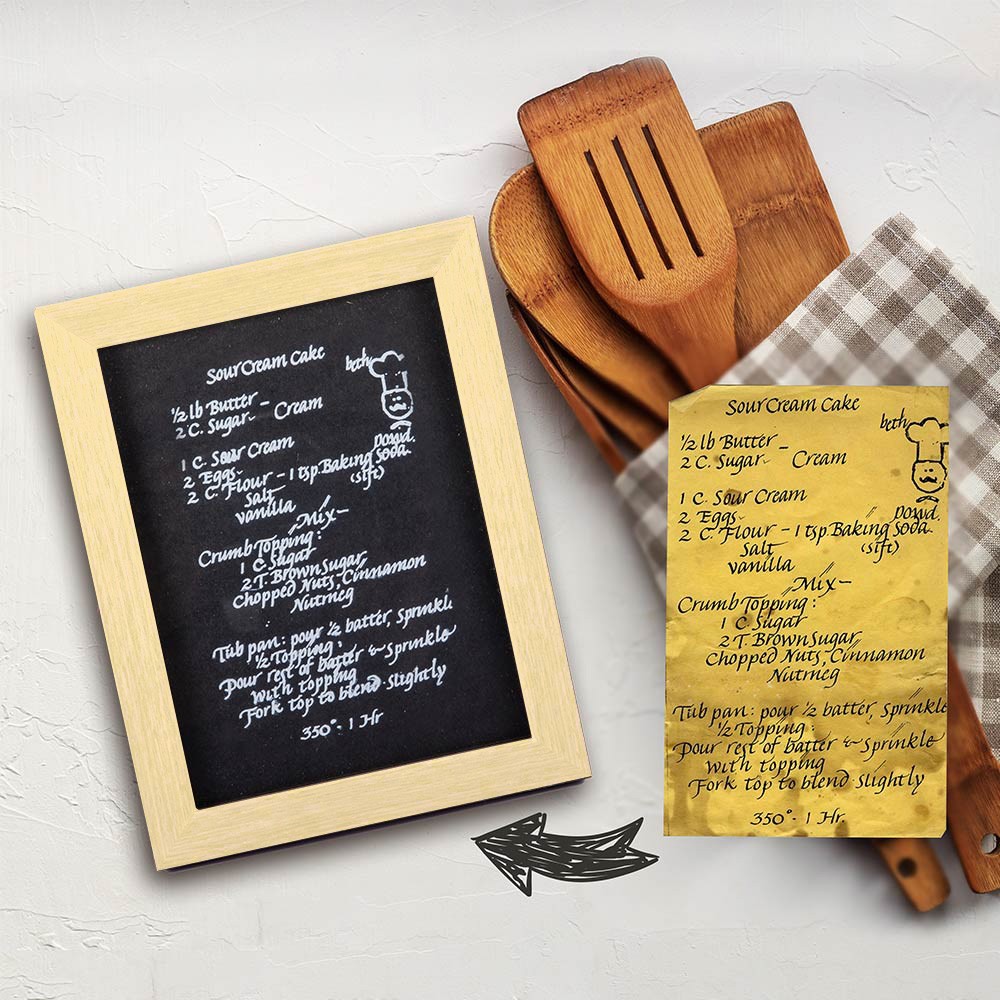 Sour Cream Cake
beth
½ lb Butter –
2 C. Sugar – Cream
1 C. Sour Cream
2 Eggs
powd.
2 C. Flour – 1 tsp. Baking Soda
Salt (sift)
vanilla
Mix –
Crumb Topping :
1 C. Sugar
2 T. Brown Sugar
Chopped Nuts, Cinnamon
Nutmeg
Tub pan : pour ½ batter, Sprinkl
½ Topping :
Pour rest of batter & Sprinkle
with topping
Fork top to blend slightly
350° - 1 Hr
Sour Cream Cake
beth
½ lb Butter –
2 C. Sugar – Cream
1 C. Sour Cream
2 Eggs
powd.
2 C. Flour – 1 tsp. Baking Soda
Salt (sift)
vanilla
Mix –
Crumb Topping :
1 C. Sugar
2 T. Brown Sugar
Chopped Nuts, Cinnamon
Nutmeg
Tub pan : pour ½ batter, Sprinkle
½ Topping :
Pour rest of batter & Sprinkle
with topping
Fork top to blend slightly
350° - 1 Hr.